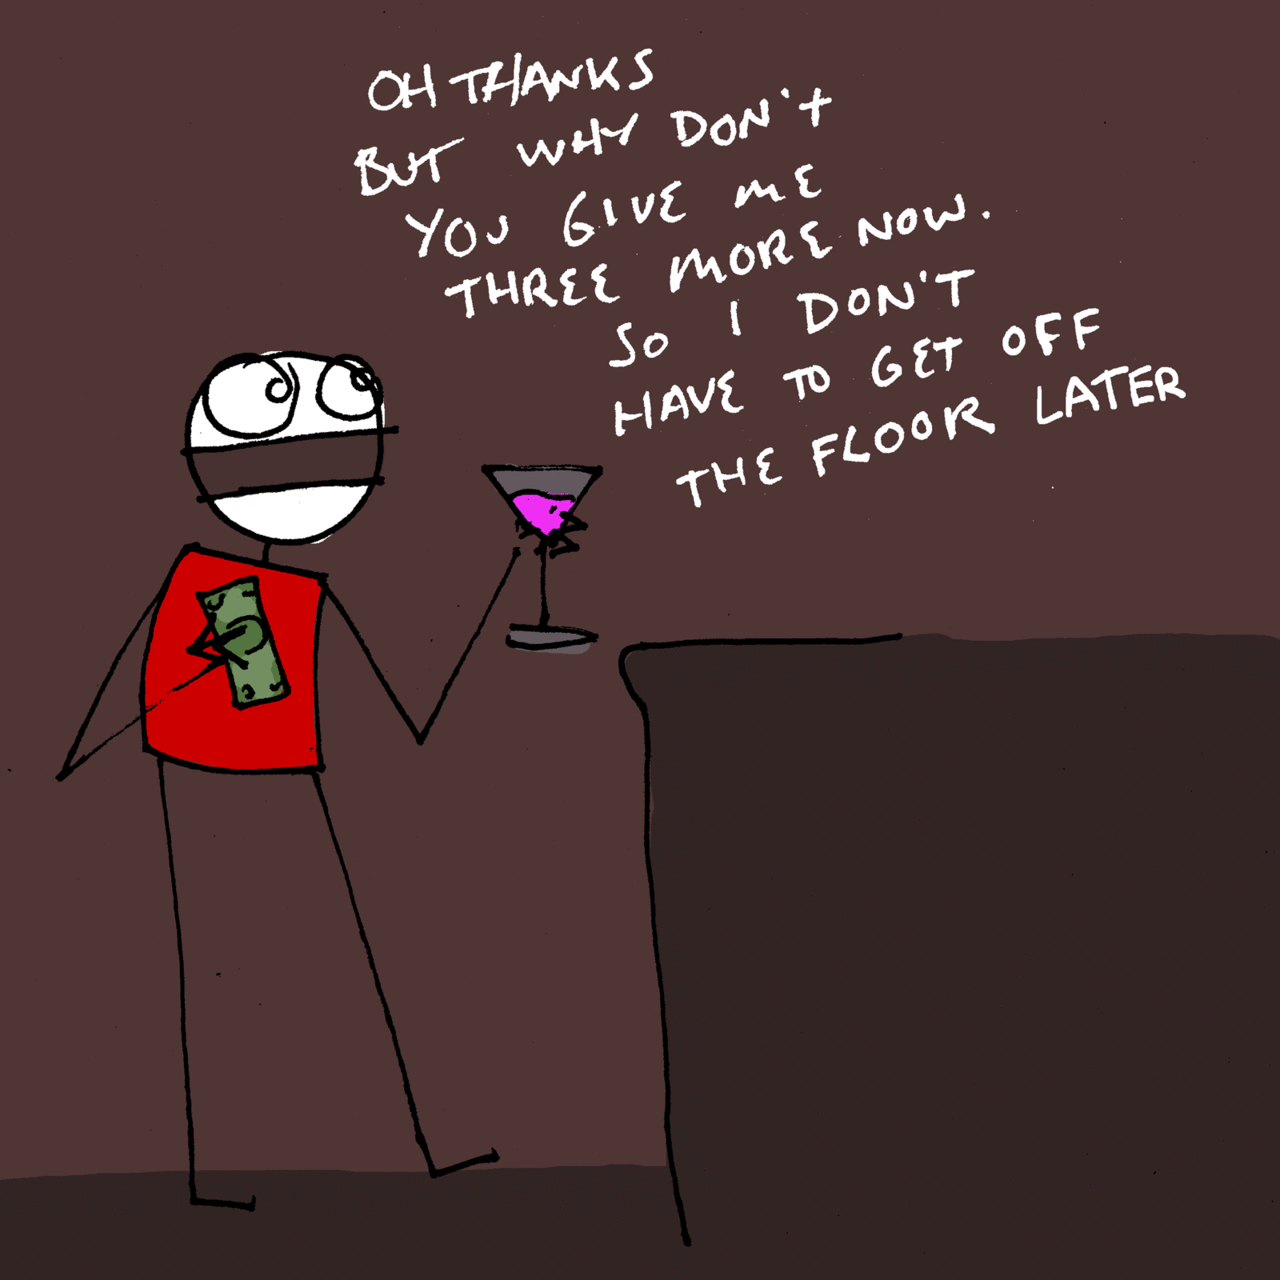 OH THANKS
BUT WHY DON't
YOU GIVE ME
THREE MORE NOW.
SO I DON'T
HAVE TO GET OFF
THE FLOOR LATER